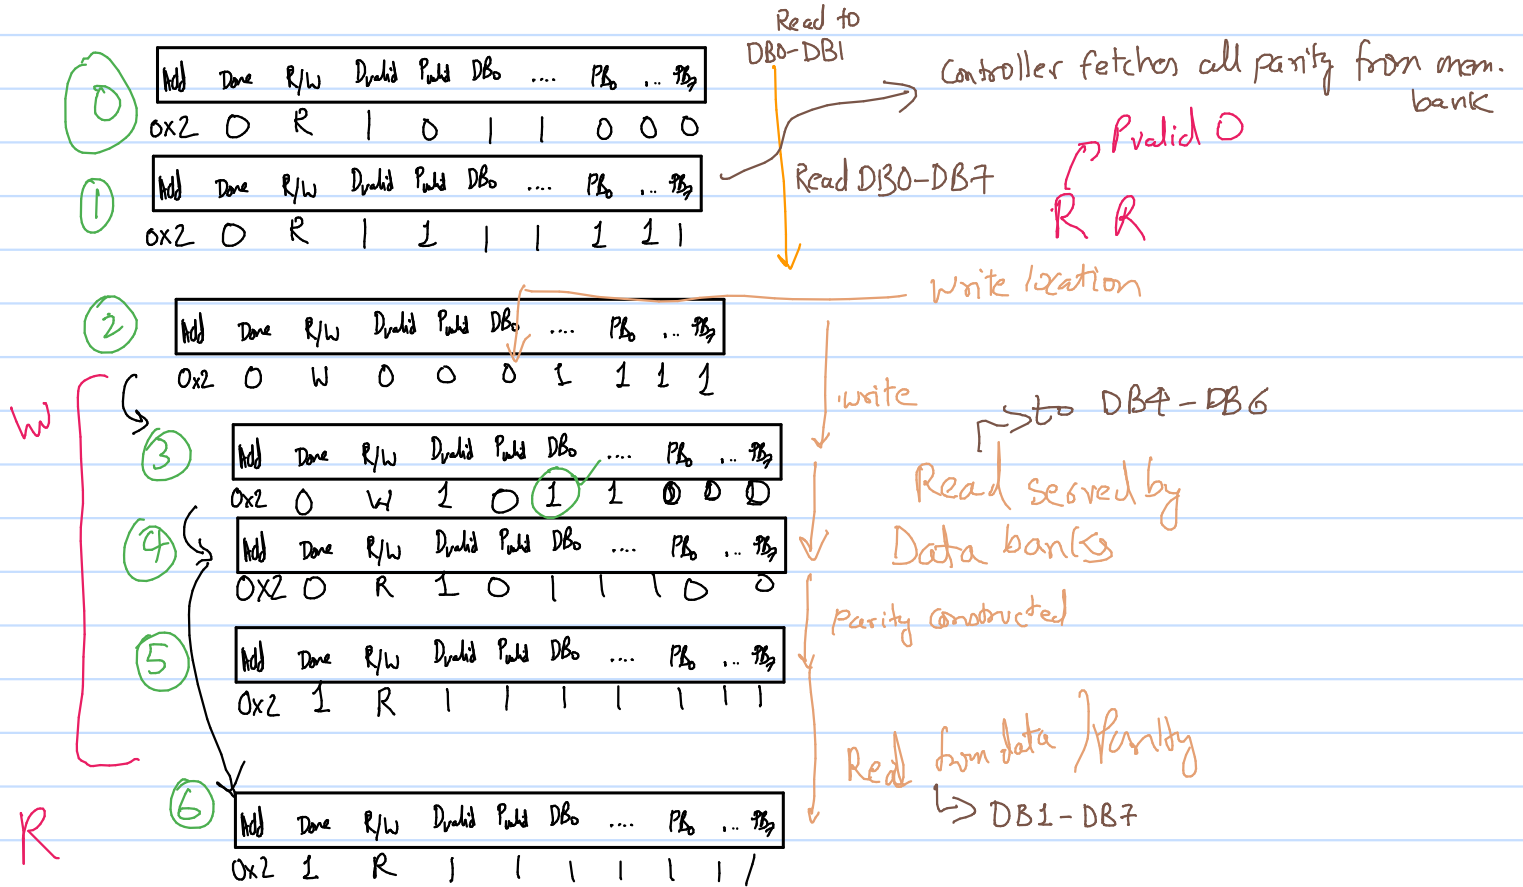 Read to
DB0-DB1
0
Add Done R/W Dvalid Pvalid DB0 .... PB0 ... PB7
0x2 0 R 1 0 1 1 0 0 0
Controller fetches all parity from mem.
bank
Pvalid 0
1
Add Done R/W Dvalid Pvalid DB0 .... PB0 ... PB7
0x2 0 R 1 1 1 1 1 1 1
Read DB0-DB7
R R
Write location
2
Add Done R/W Dvalid Pvalid DB0 .... PB0 ... PB7
0x2 0 W 0 0 0 1 1 1 1
W
write
to DB4-DB6
3
Add Done R/W Dvalid Pvalid DB0 .... PB0 ... PB7
0x2 0 W 1 0 1 1 0 0 0
Read served by
Data banks
4
Add Done R/W Dvalid Pvalid DB0 .... PB0 ... PB7
0x2 0 R 1 0 1 1 1 0 0
Parity constructed
5
Add Done R/W Dvalid Pvalid DB0 .... PB0 ... PB7
0x2 1 R 1 1 1 1 1 1 1
Read from data / Parity
DB1-DB7
6
Add Done R/W Dvalid Pvalid DB0 .... PB0 ... PB7
0x2 1 R 1 1 1 1 1 1 1
R